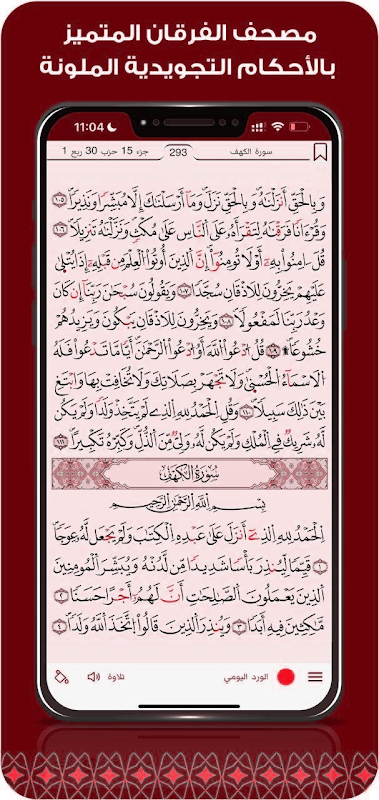 مصحف الفرقان المتميز
بالأحكام التجويدية الملونة
11:04
سورة الكهف
293
جزء 15 حزب 30 ربع 1
وَبِالْحَقِّ أَنزَلْنَٰهُ وَبِالْحَقِّ نَزَلَ وَمَا أَرْسَلْنَٰكَ إِلَّا مُبَشِّرًا وَنَذِيرًا ١٠٥
وَقُرْءَانًا فَرَقْنَٰهُ لِتَقْرَأَهُ عَلَى النَّاسِ عَلَىٰ مُكْثٍ وَنَزَّلْنَٰهُ تَنزِيلًا ١٠٦
قُلْ ءَامِنُوا بِهِ أَوْ لَا تُؤْمِنُوا إِنَّ الَّذِينَ أُوتُوا الْعِلْمَ مِن قَبْلِهِ إِذَا يُتْلَىٰ
عَلَيْهِمْ يَخِرُّونَ لِلْأَذْقَانِ سُجَّدًا ١٠٧ وَيَقُولُونَ سُبْحَٰنَ رَبِّنَا إِن كَانَ
وَعْدُ رَبِّنَا لَمَفْعُولًا ١٠٨ وَيَخِرُّونَ لِلْأَذْقَانِ يَبْكُونَ وَيَزِيدُهُمْ
خُشُوعًا ۩ ١٠٩ قُلِ ادْعُوا اللَّهَ أَوِ ادْعُوا الرَّحْمَٰنَ أَيًّا مَّا تَدْعُوا فَلَهُ
الْأَسْمَاءُ الْحُسْنَىٰ وَلَا تَجْهَرْ بِصَلَاتِكَ وَلَا تُخَافِتْ بِهَا وَابْتَغِ
بَيْنَ ذَٰلِكَ سَبِيلًا ١١٠ وَقُلِ الْحَمْدُ لِلَّهِ الَّذِي لَمْ يَتَّخِذْ وَلَدًا وَلَمْ يَكُن
لَّهُ شَرِيكٌ فِي الْمُلْكِ وَلَمْ يَكُن لَّهُ وَلِيٌّ مِّنَ الذُّلِّ وَكَبِّرْهُ تَكْبِيرًا ١١١
سُورَةُ الْكَهْفِ
بِسْمِ اللَّهِ الرَّحْمَٰنِ الرَّحِيمِ
الْحَمْدُ لِلَّهِ الَّذِي أَنزَلَ عَلَىٰ عَبْدِهِ الْكِتَٰبَ وَلَمْ يَجْعَل لَّهُ عِوَجًا
١ قَيِّمًا لِّيُنذِرَ بَأْسًا شَدِيدًا مِّن لَّدُنْهُ وَيُبَشِّرَ الْمُؤْمِنِينَ
الَّذِينَ يَعْمَلُونَ الصَّٰلِحَٰتِ أَنَّ لَهُمْ أَجْرًا حَسَنًا ٢
مَّٰكِثِينَ فِيهِ أَبَدًا ٣ وَيُنذِرَ الَّذِينَ قَالُوا اتَّخَذَ اللَّهُ وَلَدًا ٤
الورد اليومي
تلاوة